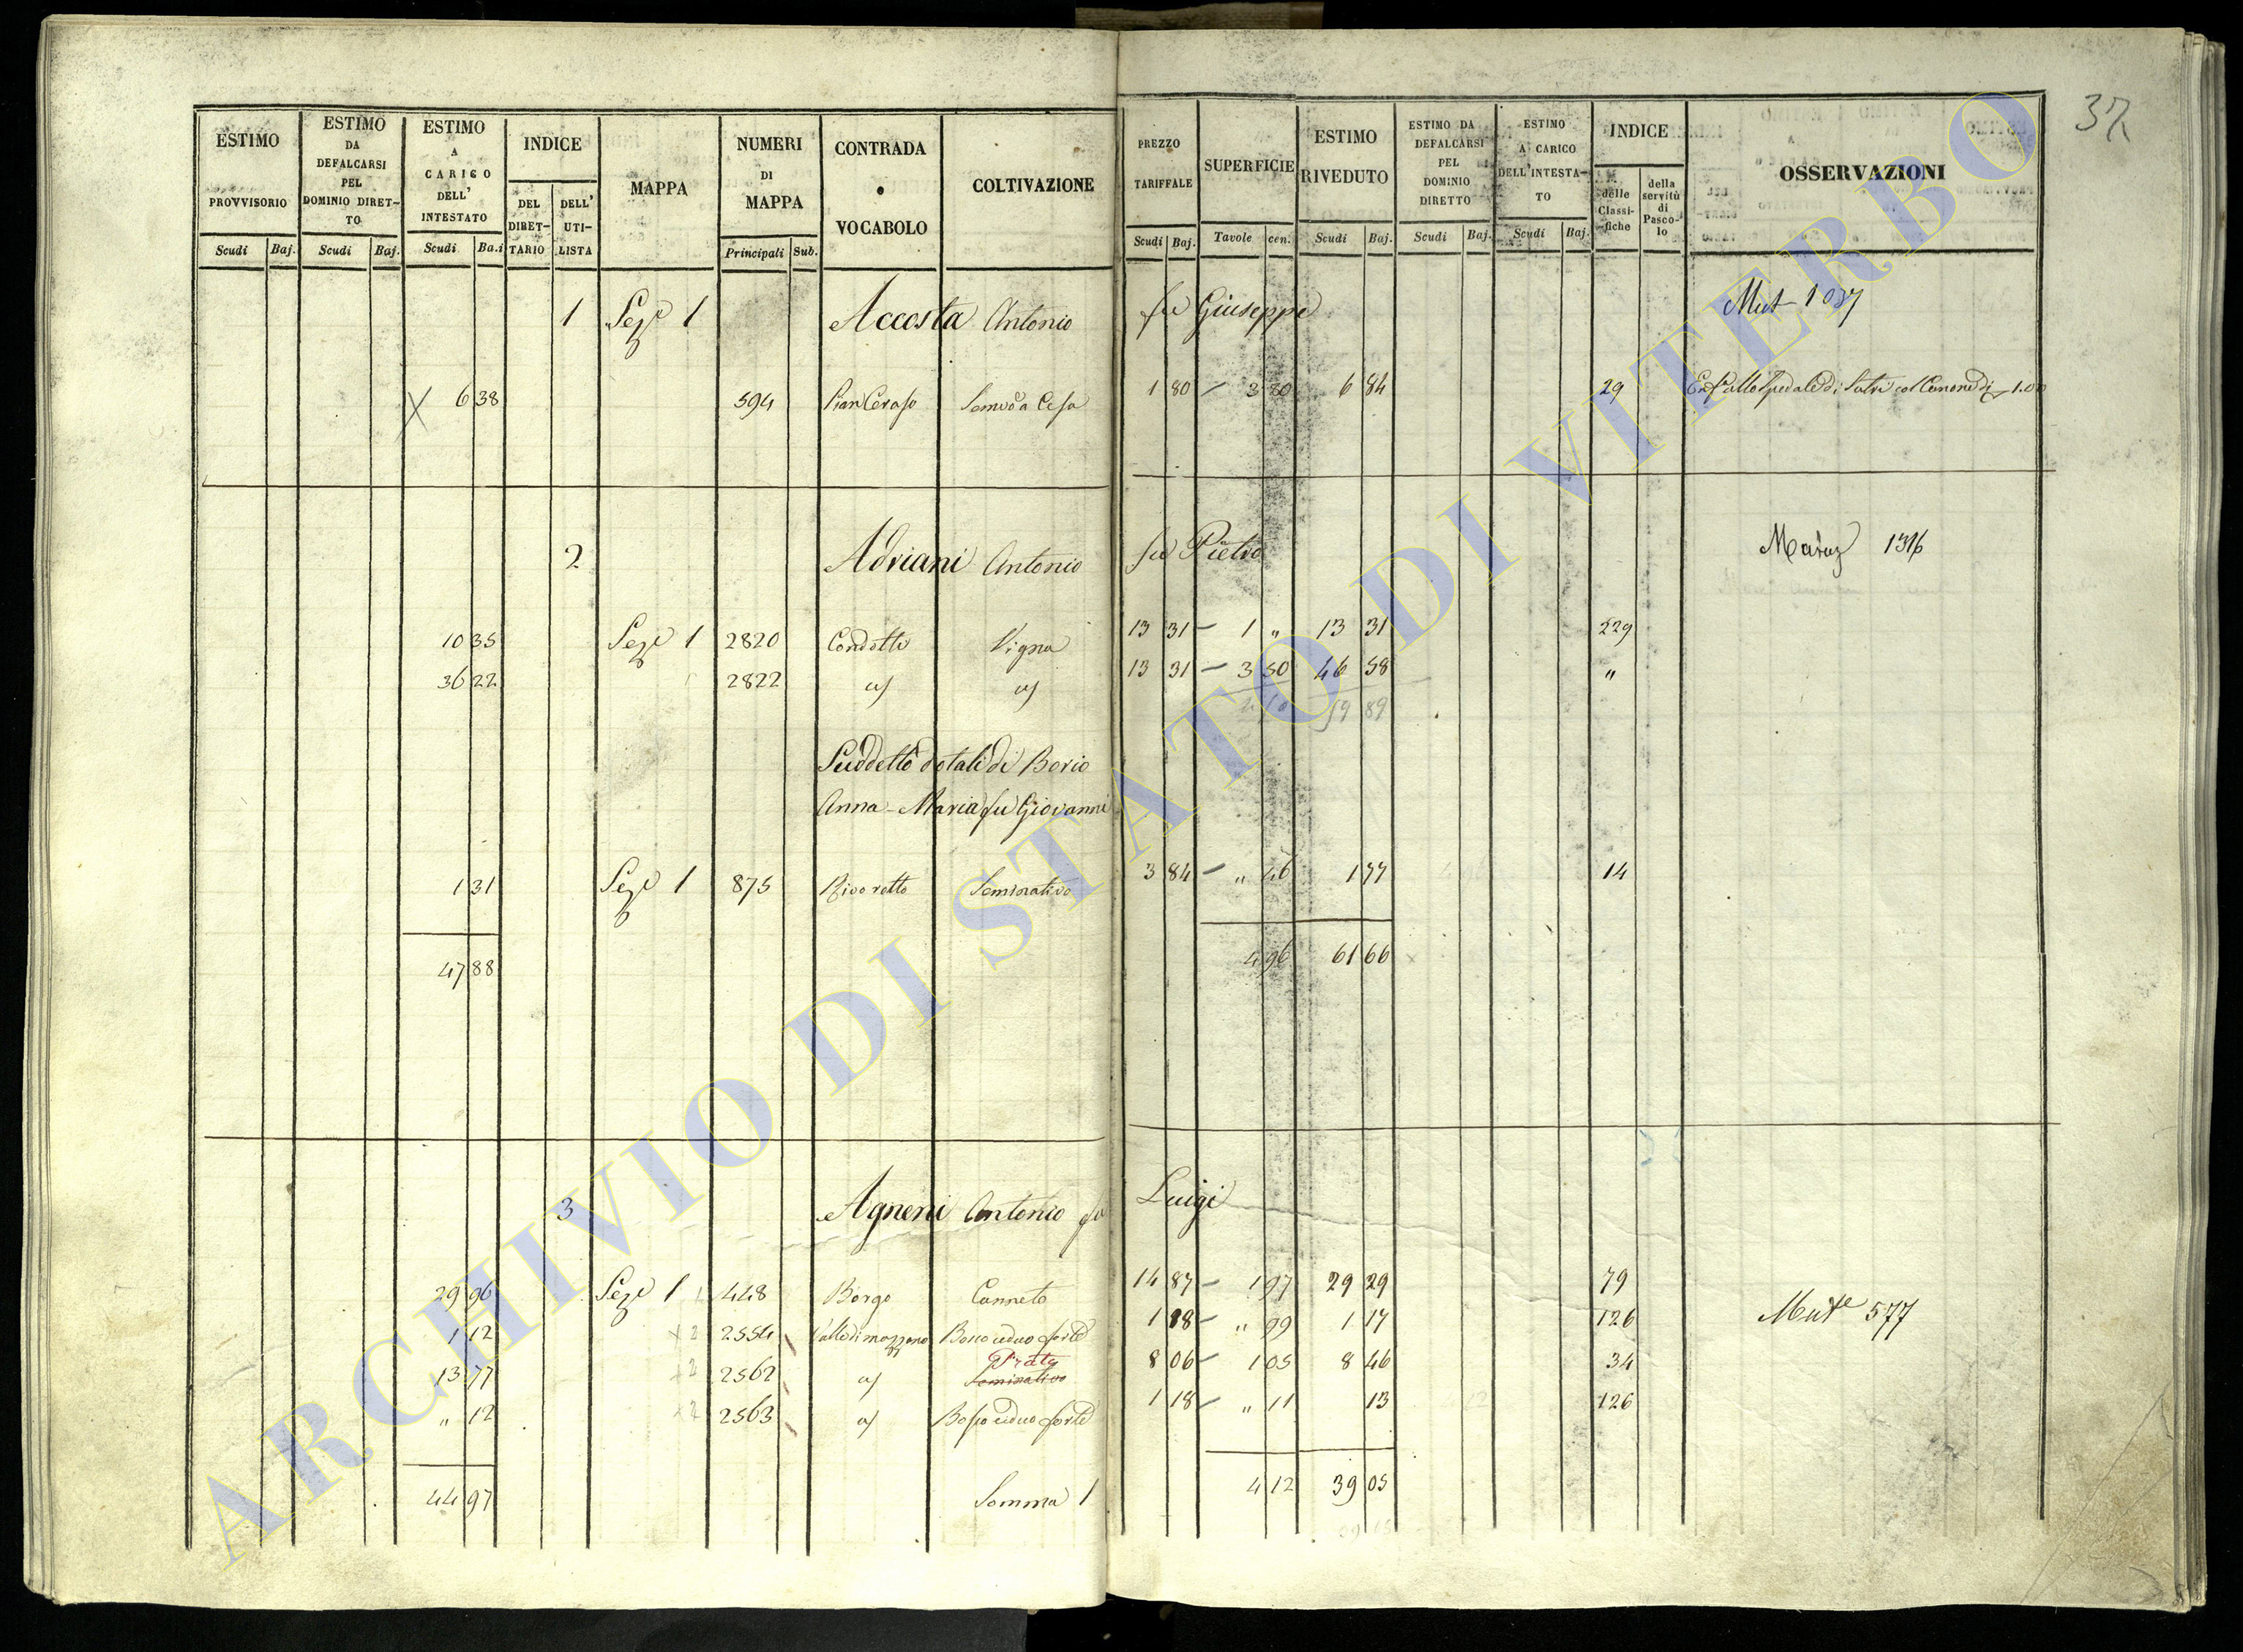 37
ESTIMO PROVVISORIO Scudi Baj.
ESTIMO DA DEFALCARSI PEL DOMINIO DIRET-TO Scudi Baj.
ESTIMO A CARICO DELL' INTESTATO Scudi Ba.i
INDICE DEL DIRET-TARIO DELL' UTI-LISTA
MAPPA
NUMERI DI MAPPA Principali Sub.
CONTRADA o VOCABOLO
COLTIVAZIONE
PREZZO TARIFFALE Scudi Baj.
SUPERFICIE Tavole cen.
ESTIMO RIVEDUTO Scudi Baj.
ESTIMO DA DEFALCARSI PEL DOMINIO DIRETTO Scudi Baj.
ESTIMO A CARICO DELL'INTESTA-TO Scudi Baj.
INDICE delle Classi-fiche della servitù di Pasco-lo
OSSERVAZIONI
1 Sez.e 1 Accosta Antonio fu Giuseppe Mut 1037
6 38 594 Pian Ceraso 1 80 3 80 6 84 29 allo Spedale di Sutri col Canone di 1.00
2 Adriani Antonio fu Pietro 1316
10 35 Sez.e 1 2820 Condotti Vigna 13 31 1 " 13 31 229
36 22 2822 a) a) 13 31 3 50 46 58 "
4 50 59 89
Suddetto dotali di Borio
Anna Maria fu Giovanni
1 31 Sez.e 1 875 Rivo rotto Seminativo 3 84 " 46 1 77 14
47 88 4 96 61 66
3 Agneni Antonio fu Luigi
29 96 Sez.e 1 448 Borgo Canneto 14 87 1 97 29 29 79
1 12 2554 Valle di mazzano Bosco ceduo forte 1 18 " 99 1 17 126 Mut.e 577
13 77 2562 a) Prato Seminativo 8 06 1 05 8 46 34
" 12 2563 a) Bosco ceduo forte 1 18 " 11 13 126
44 97 Somma 1 4 12 39 05
ARCHIVIO DI STATO DI VITERBO